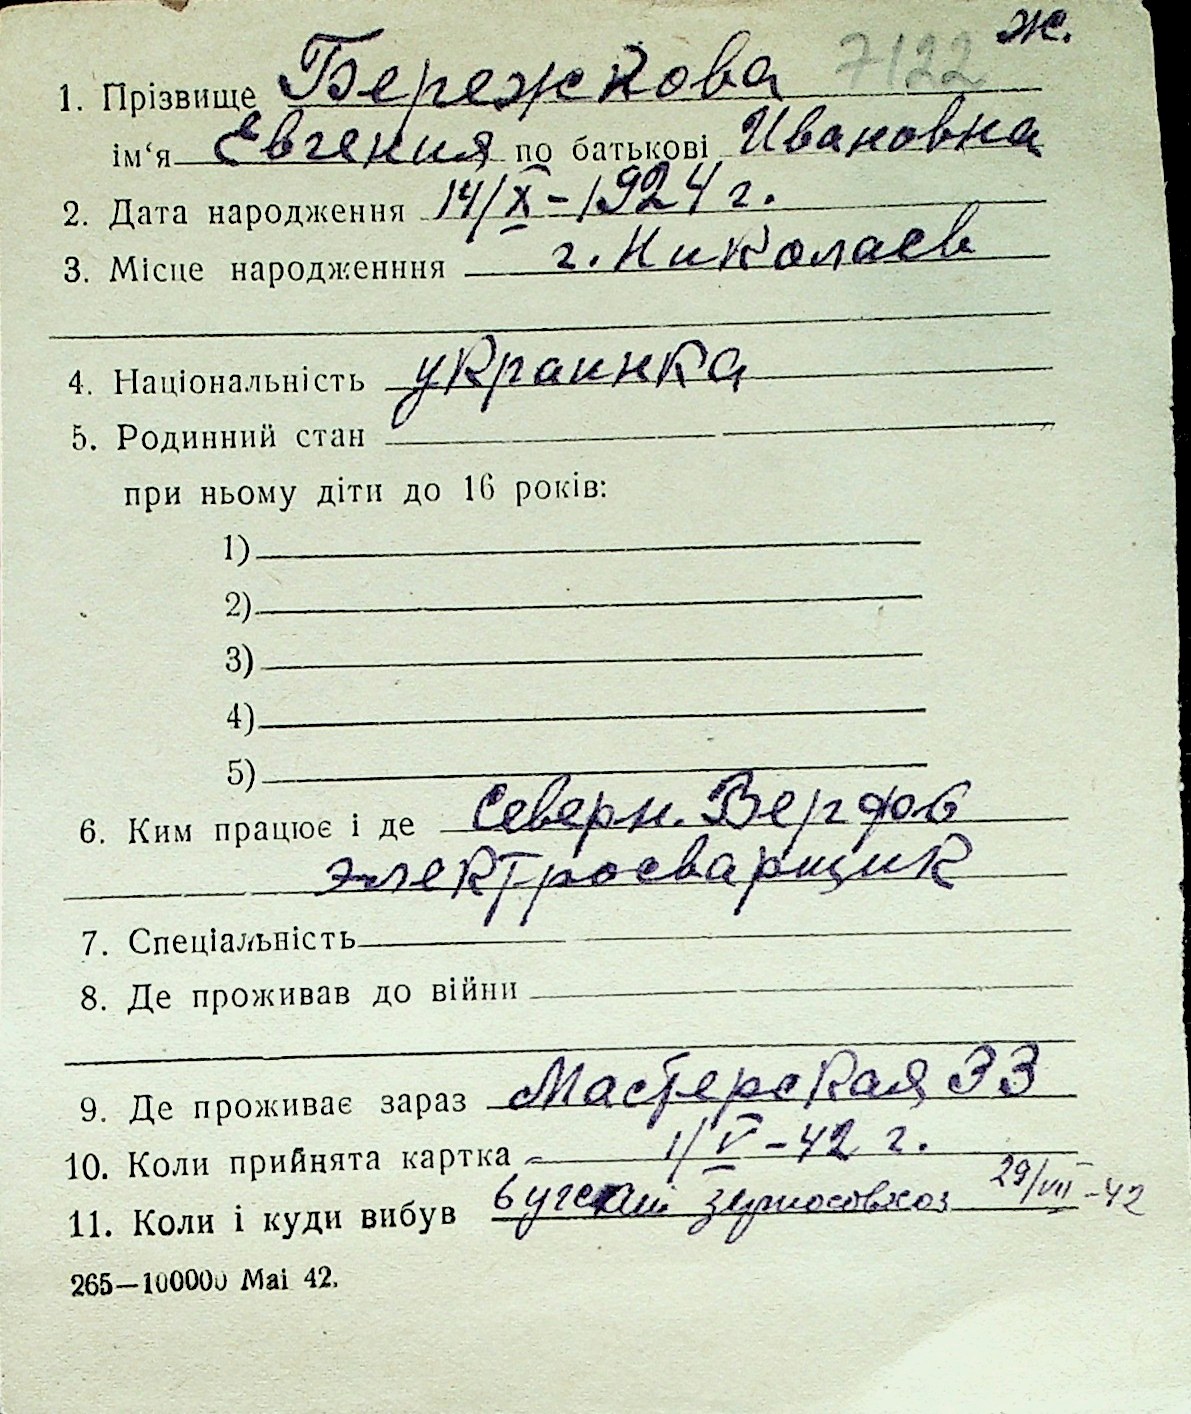 ж.
1. Прізвище Бережкова 7122
ім‘я Евгения по батькові Ивановна
2. Дата народження 14/X – 1924 г.
3. Місце народженння г. Николаев
4. Національність украинка
5. Родинний стан
при ньому діти до 16 років:
1)
2)
3)
4)
5)
6. Ким працює і де Северн. Верфов
электросварщик
7. Спеціальність
8. Де проживав до війни
9. Де проживає зараз Мастерская 33
10. Коли прийнята картка 1/V – 42 г.
11. Коли і куди вибув бугский зерносовхоз 29/VII – 42
265—100000 Mai 42.